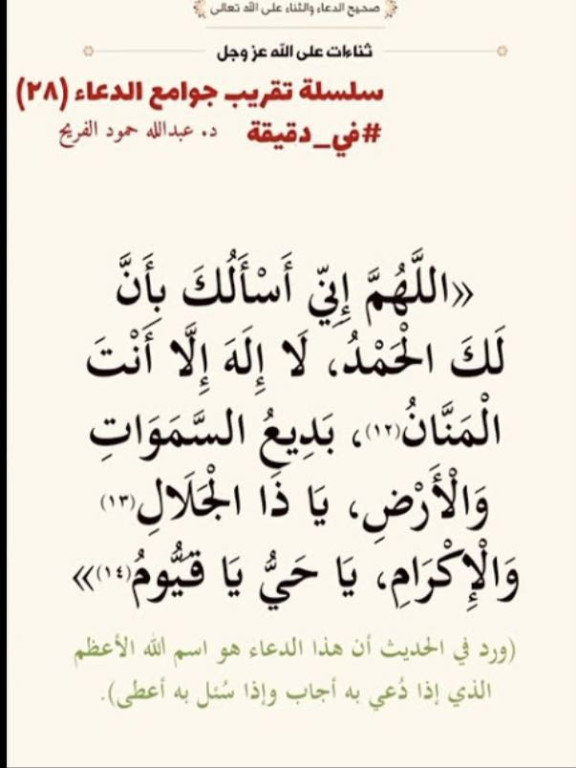 صحيح الدعاء والثناء على الله تعالى
ثناءات على الله عز وجل
سلسلة تقريب جوامع الدعاء (٢٨)
#في_دقيقة د. عبدالله حمود الفريح
«اللَّهُمَّ إِنِّي أَسْأَلُكَ بِأَنَّ
لَكَ الْحَمْدُ، لَا إِلَهَ إِلَّا أَنْتَ
الْمَنَّانُ(١٢)، بَدِيعُ السَّمَوَاتِ
وَالْأَرْضِ، يَا ذَا الْجَلَالِ(١٣)
وَالْإِكْرَامِ، يَا حَيُّ يَا قَيُّومُ(١٤)»
(ورد في الحديث أن هذا الدعاء هو اسم الله الأعظم
الذي إذا دُعي به أجاب وإذا سُئل به أعطى).